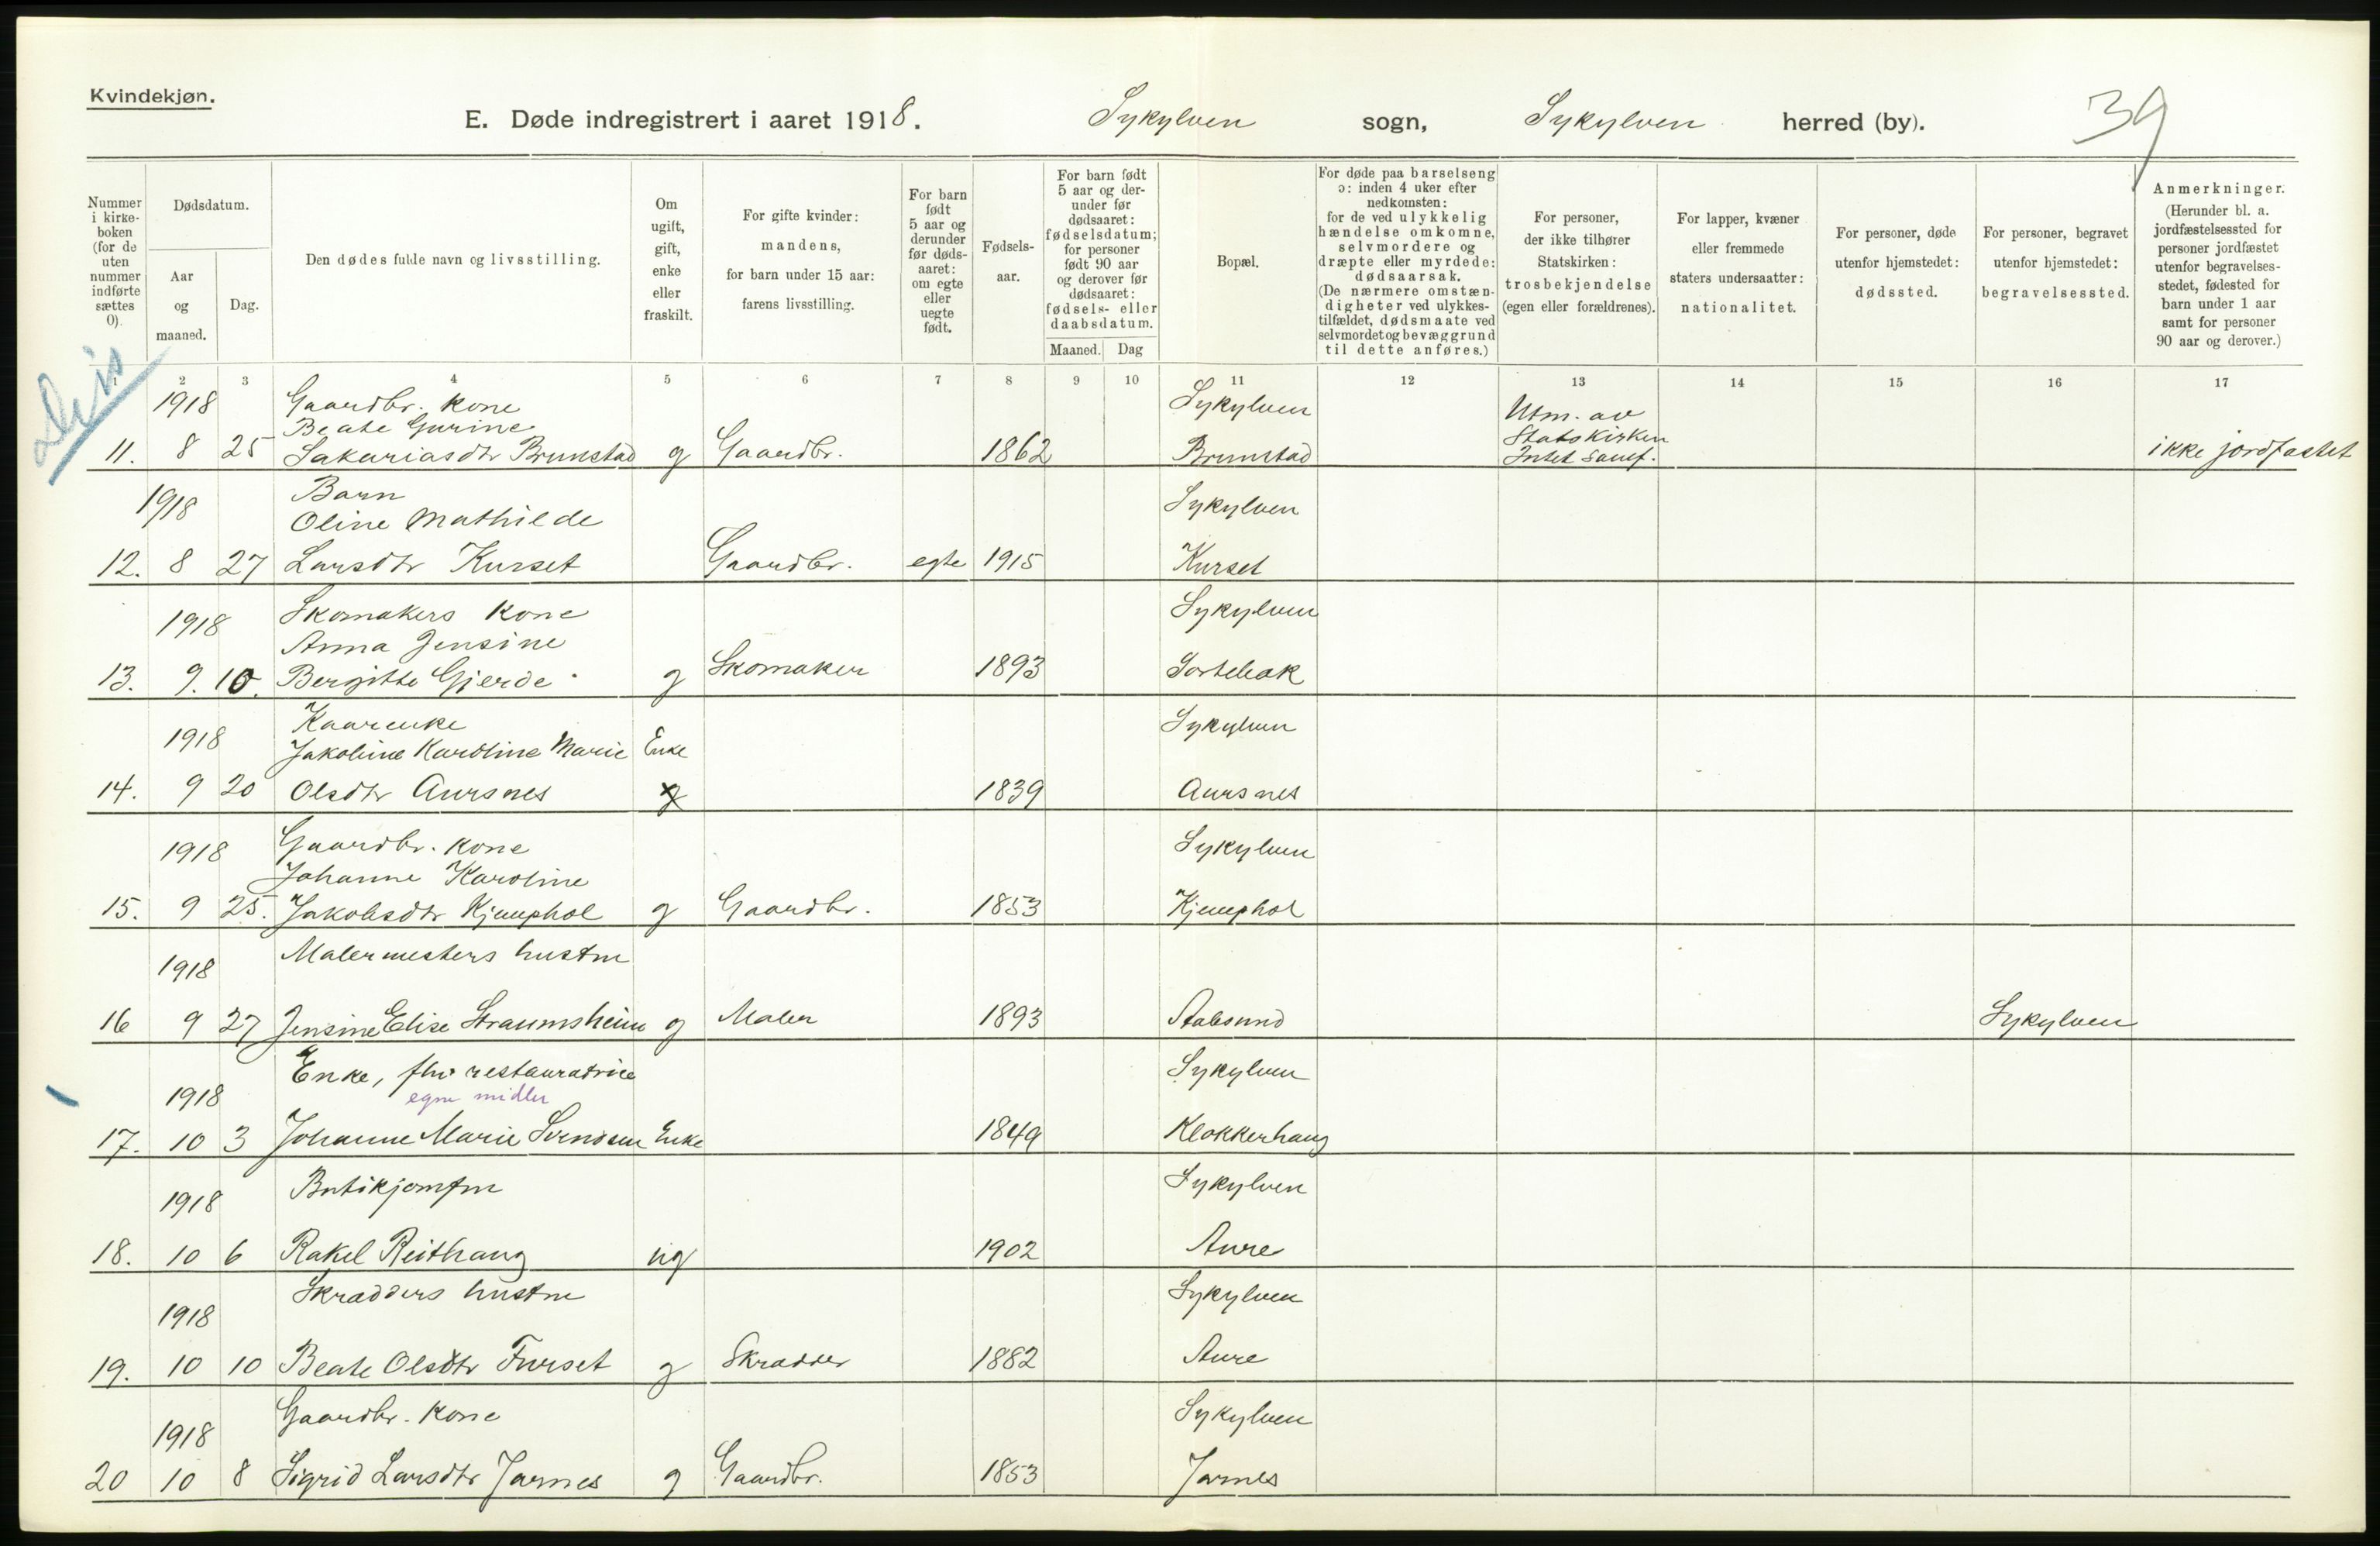 Kvindekjøn.
E. Døde indregistrert i aaret 1918. Sykylven sogn, Sykylven herred (by). 39
Nummer i kirke-boken (for de uten nummer indførte sættes 0).
Dødsdatum.
Aar og maaned.
Dag.
Den dødes fulde navn og livsstilling.
Om ugift, gift, enke eller fraskilt.
For gifte kvinder: mandens, for barn under 15 aar: farens livsstilling.
For barn født 5 aar og derunder før døds-aaret: om egte eller uegte født.
Fødsels-aar.
For barn født 5 aar og der-under før dødsaaret: fødselsdatum; for personer født 90 aar og derover før dødsaaret: fødsels- eller daabsdatum.
Maaned. Dag
Bopæl.
For døde paa barselseng ɔ: inden 4 uker efter nedkomsten: for de ved ulykkelig hændelse omkomne, selvmordere og dræpte eller myrdede: dødsaarsak. (De nærmere omstæn-digheter ved ulykkes-tilfældet, dødsmaate ved selvmordet og bevæggrund til dette anføres.)
For personer, der ikke tilhører Statskirken: trosbekjendelse (egen eller forældrenes).
For lapper, kvæner eller fremmede staters undersaatter: nationalitet.
For personer, døde utenfor hjemstedet: dødssted.
For personer, begravet utenfor hjemstedet: begravelsessted.
Anmerkninger. (Herunder bl. a. jordfæstelsessted for personer jordfæstet utenfor begravelses-stedet, fødested for barn under 1 aar samt for personer 90 aar og derover.)
1 2 3 4 5 6 7 8 9 10 11 12 13 14 15 16 17
1918 Gaardbr. kone Sykylven Utm. av
Beate Gurine Statskirken
11. 8 25 Sakariasdtr Brunstad g Gaardbr. 1862 Brunstad Intet samf. ikke jordfæstet
1918 Barn Sykylven
Oline Mathilde
12. 8 27 Larsdtr Kurset Gaardbr. egte 1915 Kurset
1918 Skomakers kone Sykylven
Anna Jensine
13. 9. 10. Bergitte Gjerde g Skomaker 1893 Sortebak
1918 Kaarenke Sykylven
Jakobine Karoline Marie Enke
14. 9 20 Olsdtr Aursnes g 1839 Aursnes
1918 Gaardbr. kone Sykylven
Johanne Karoline
15. 9 25. Jakobsdtr Kjemphol g Gaardbr. 1853 Kjemphol
1918 Malermesters hustru
16 9 27 Jensine Elise Straumsheim g Maler 1893 Aalesund Sykylven
1918 Enke, fhv restauratrice Sykylven
egne midler
17. 10 3 Johanne Marie Svendsen Enke 1849 Klokkerhaug
1918 Butikjomfru Sykylven
18. 10 6 Rakel Reithaug ug 1902 Aure
1918 Skrædders hustru Sykylven
19. 10 10 Beate Olsdtr Furset g Skrædder 1882 Aure
1918 Gaardbr. kone Sykylven
20 10 8 Sigrid Larsdtr Jarnes g Gaardbr. 1853 Jarnes